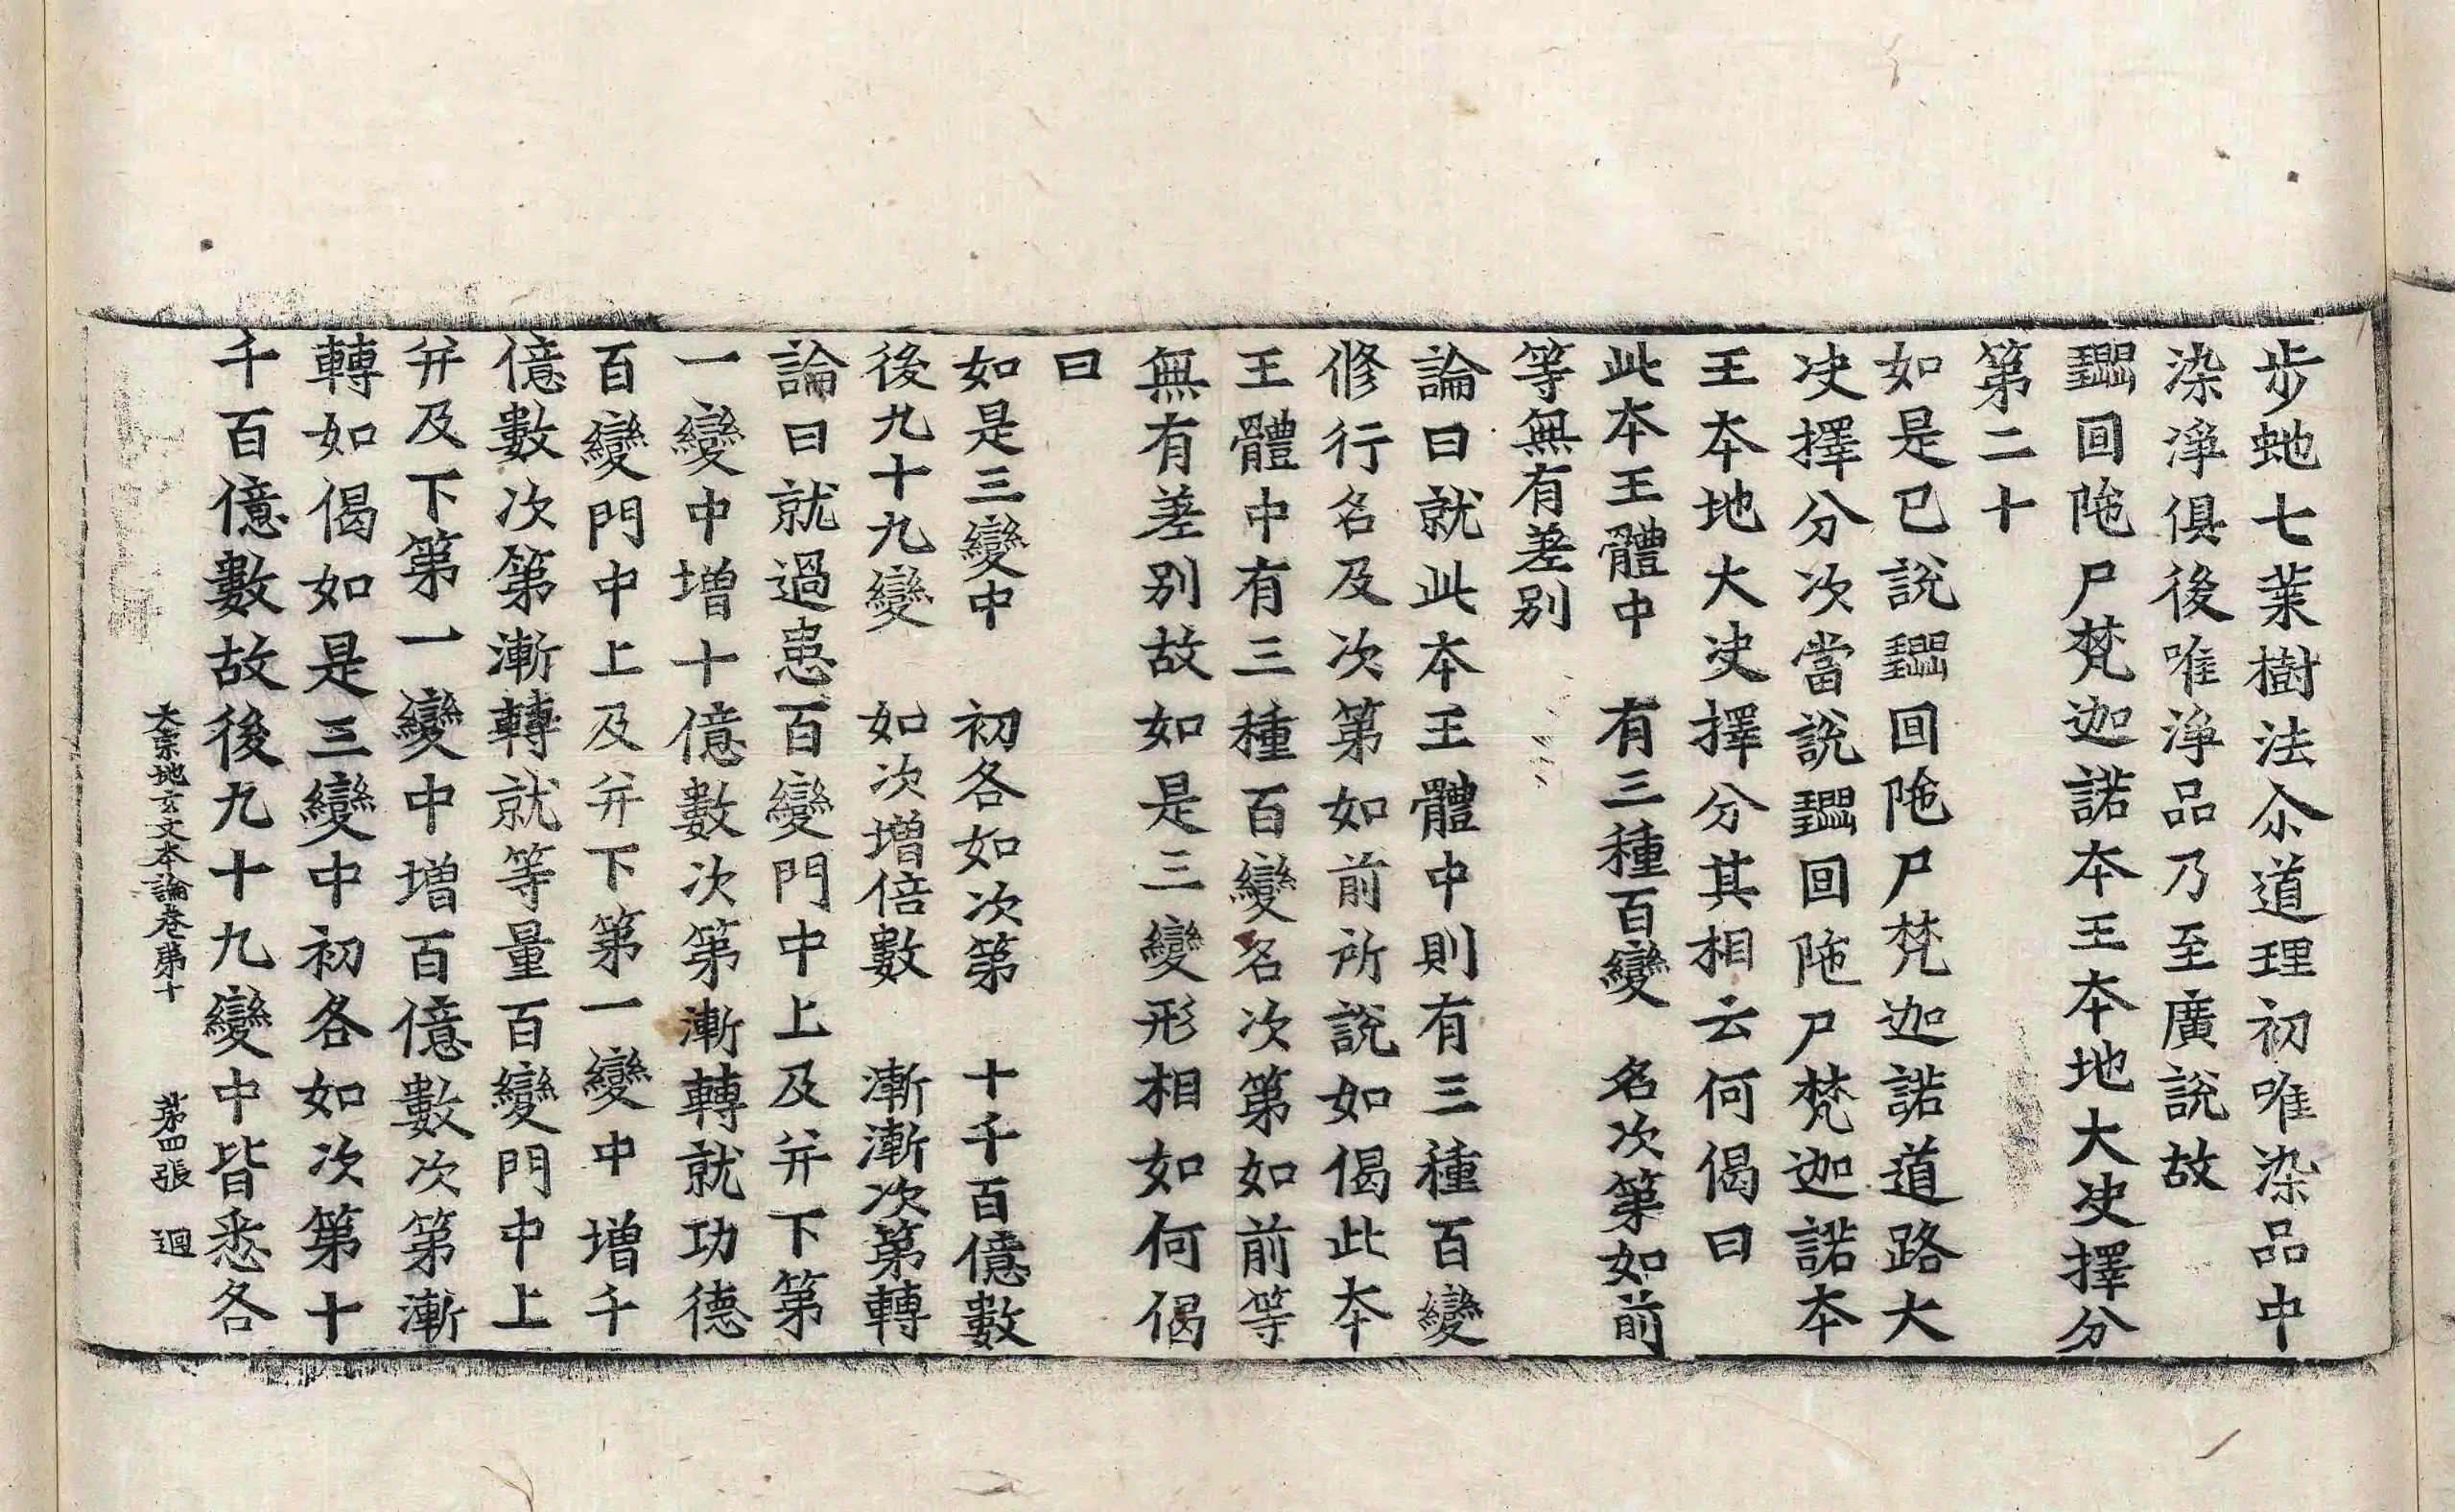 步虵七葉樹法尒道理初唯染品中
染淨俱後唯淨品乃至廣說故
回陁尸梵迦諾本王本地大决擇分
第二十
如是已說回陁尸梵迦諾道路大
决擇分次當說回陁尸梵迦諾本
王本地大决擇分其相云何偈曰
此本王體中 有三種百變 名次第如前
等無有差別
論曰就此本王體中則有三種百變
修行名及次第如前所說如偈此本
王體中有三種百變名次第如前等
無有差別故如是三變形相如何偈
曰
如是三變中 初各如次第 十千百億數
後九十九變 如次增倍數 漸漸次第轉
論曰就過患百變門中上及并下第
一變中增十億數次第漸轉就功德
百變門中上及并下第一變中增千
億數次第漸轉就等量百變門中上
并及下第一變中增百億數次第漸
轉如偈如是三變中初各如次第十
千百億數故後九十九變中皆悉各
大宗地玄文本論卷第十 第四張 迴